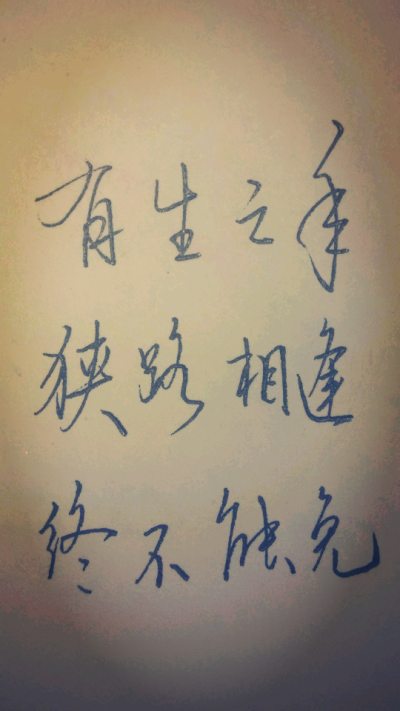 有生之年
狭路相逢
终不能免